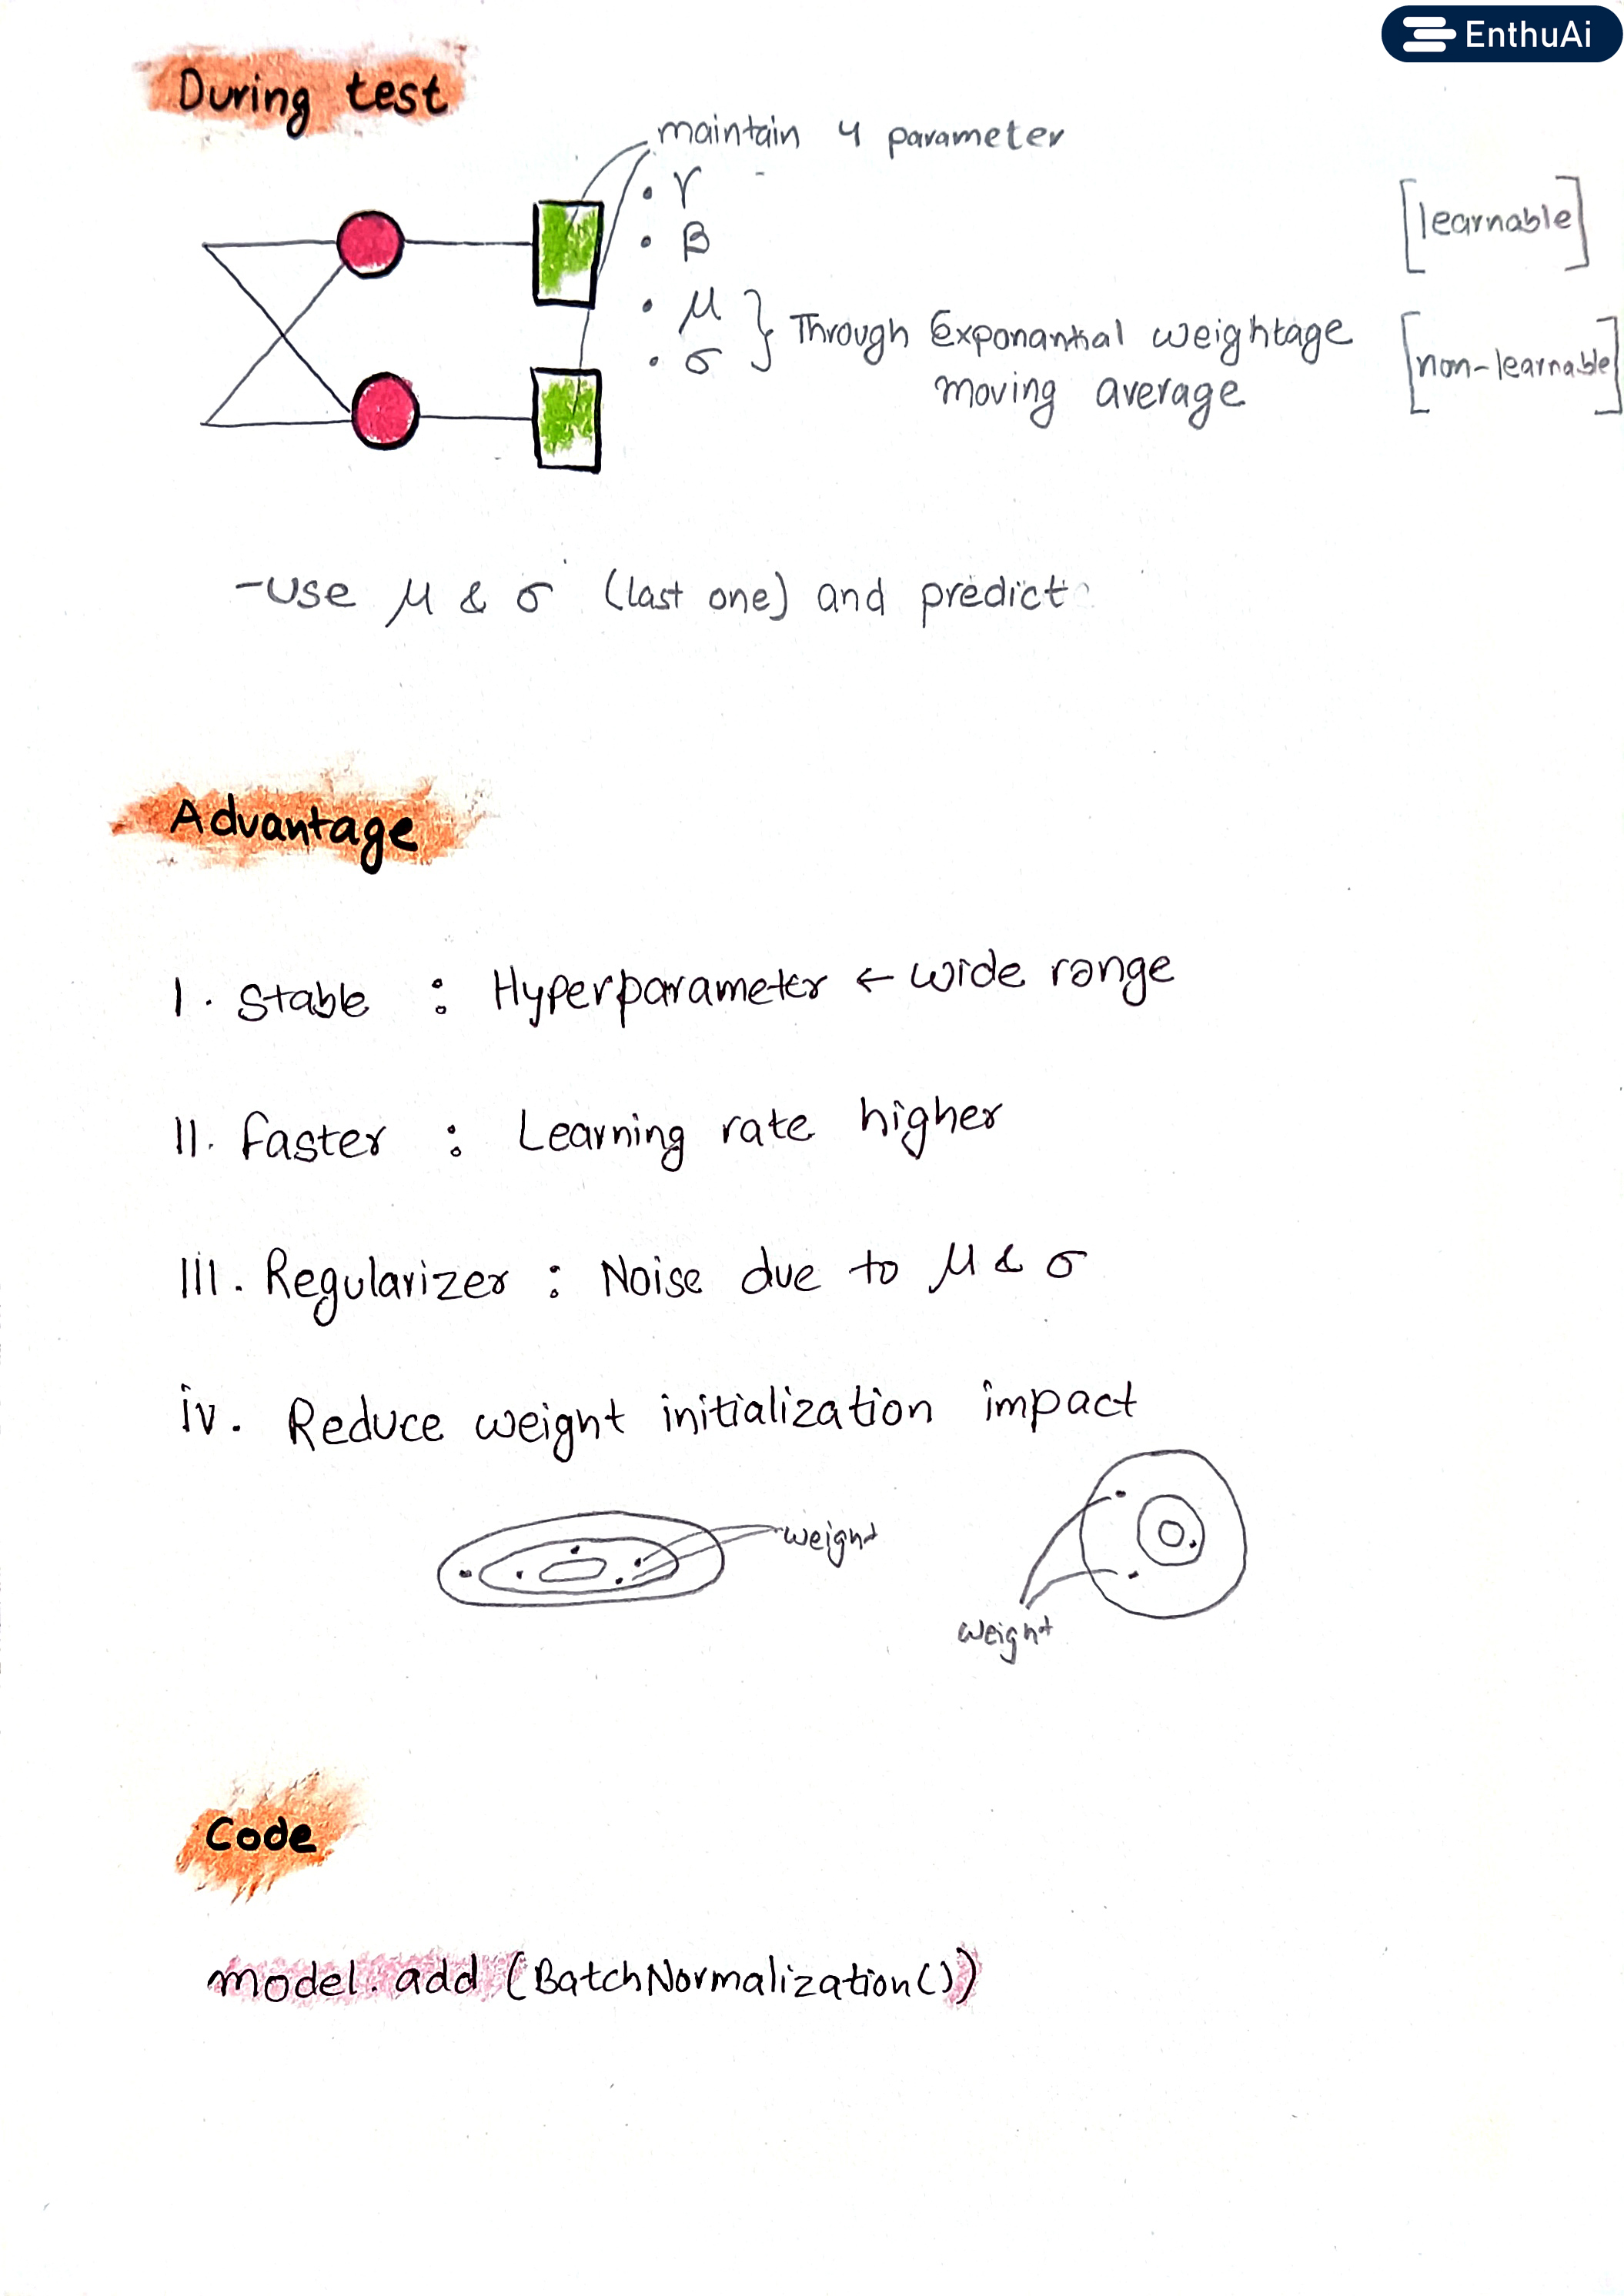 EnthuAi
During test
maintain 4 parameter
• γ [learnable]
• β
• μ } Through Exponantial weightage [non-learnable]
• σ moving average
-use μ & σ (last one) and predict
Advantage
I. Stable : Hyperparameter ← wide range
II. Faster : Learning rate higher
III. Regularizer : Noise due to μ & σ
iv. Reduce weight initialization impact
weight
weight
Code
model.add (BatchNormalization())